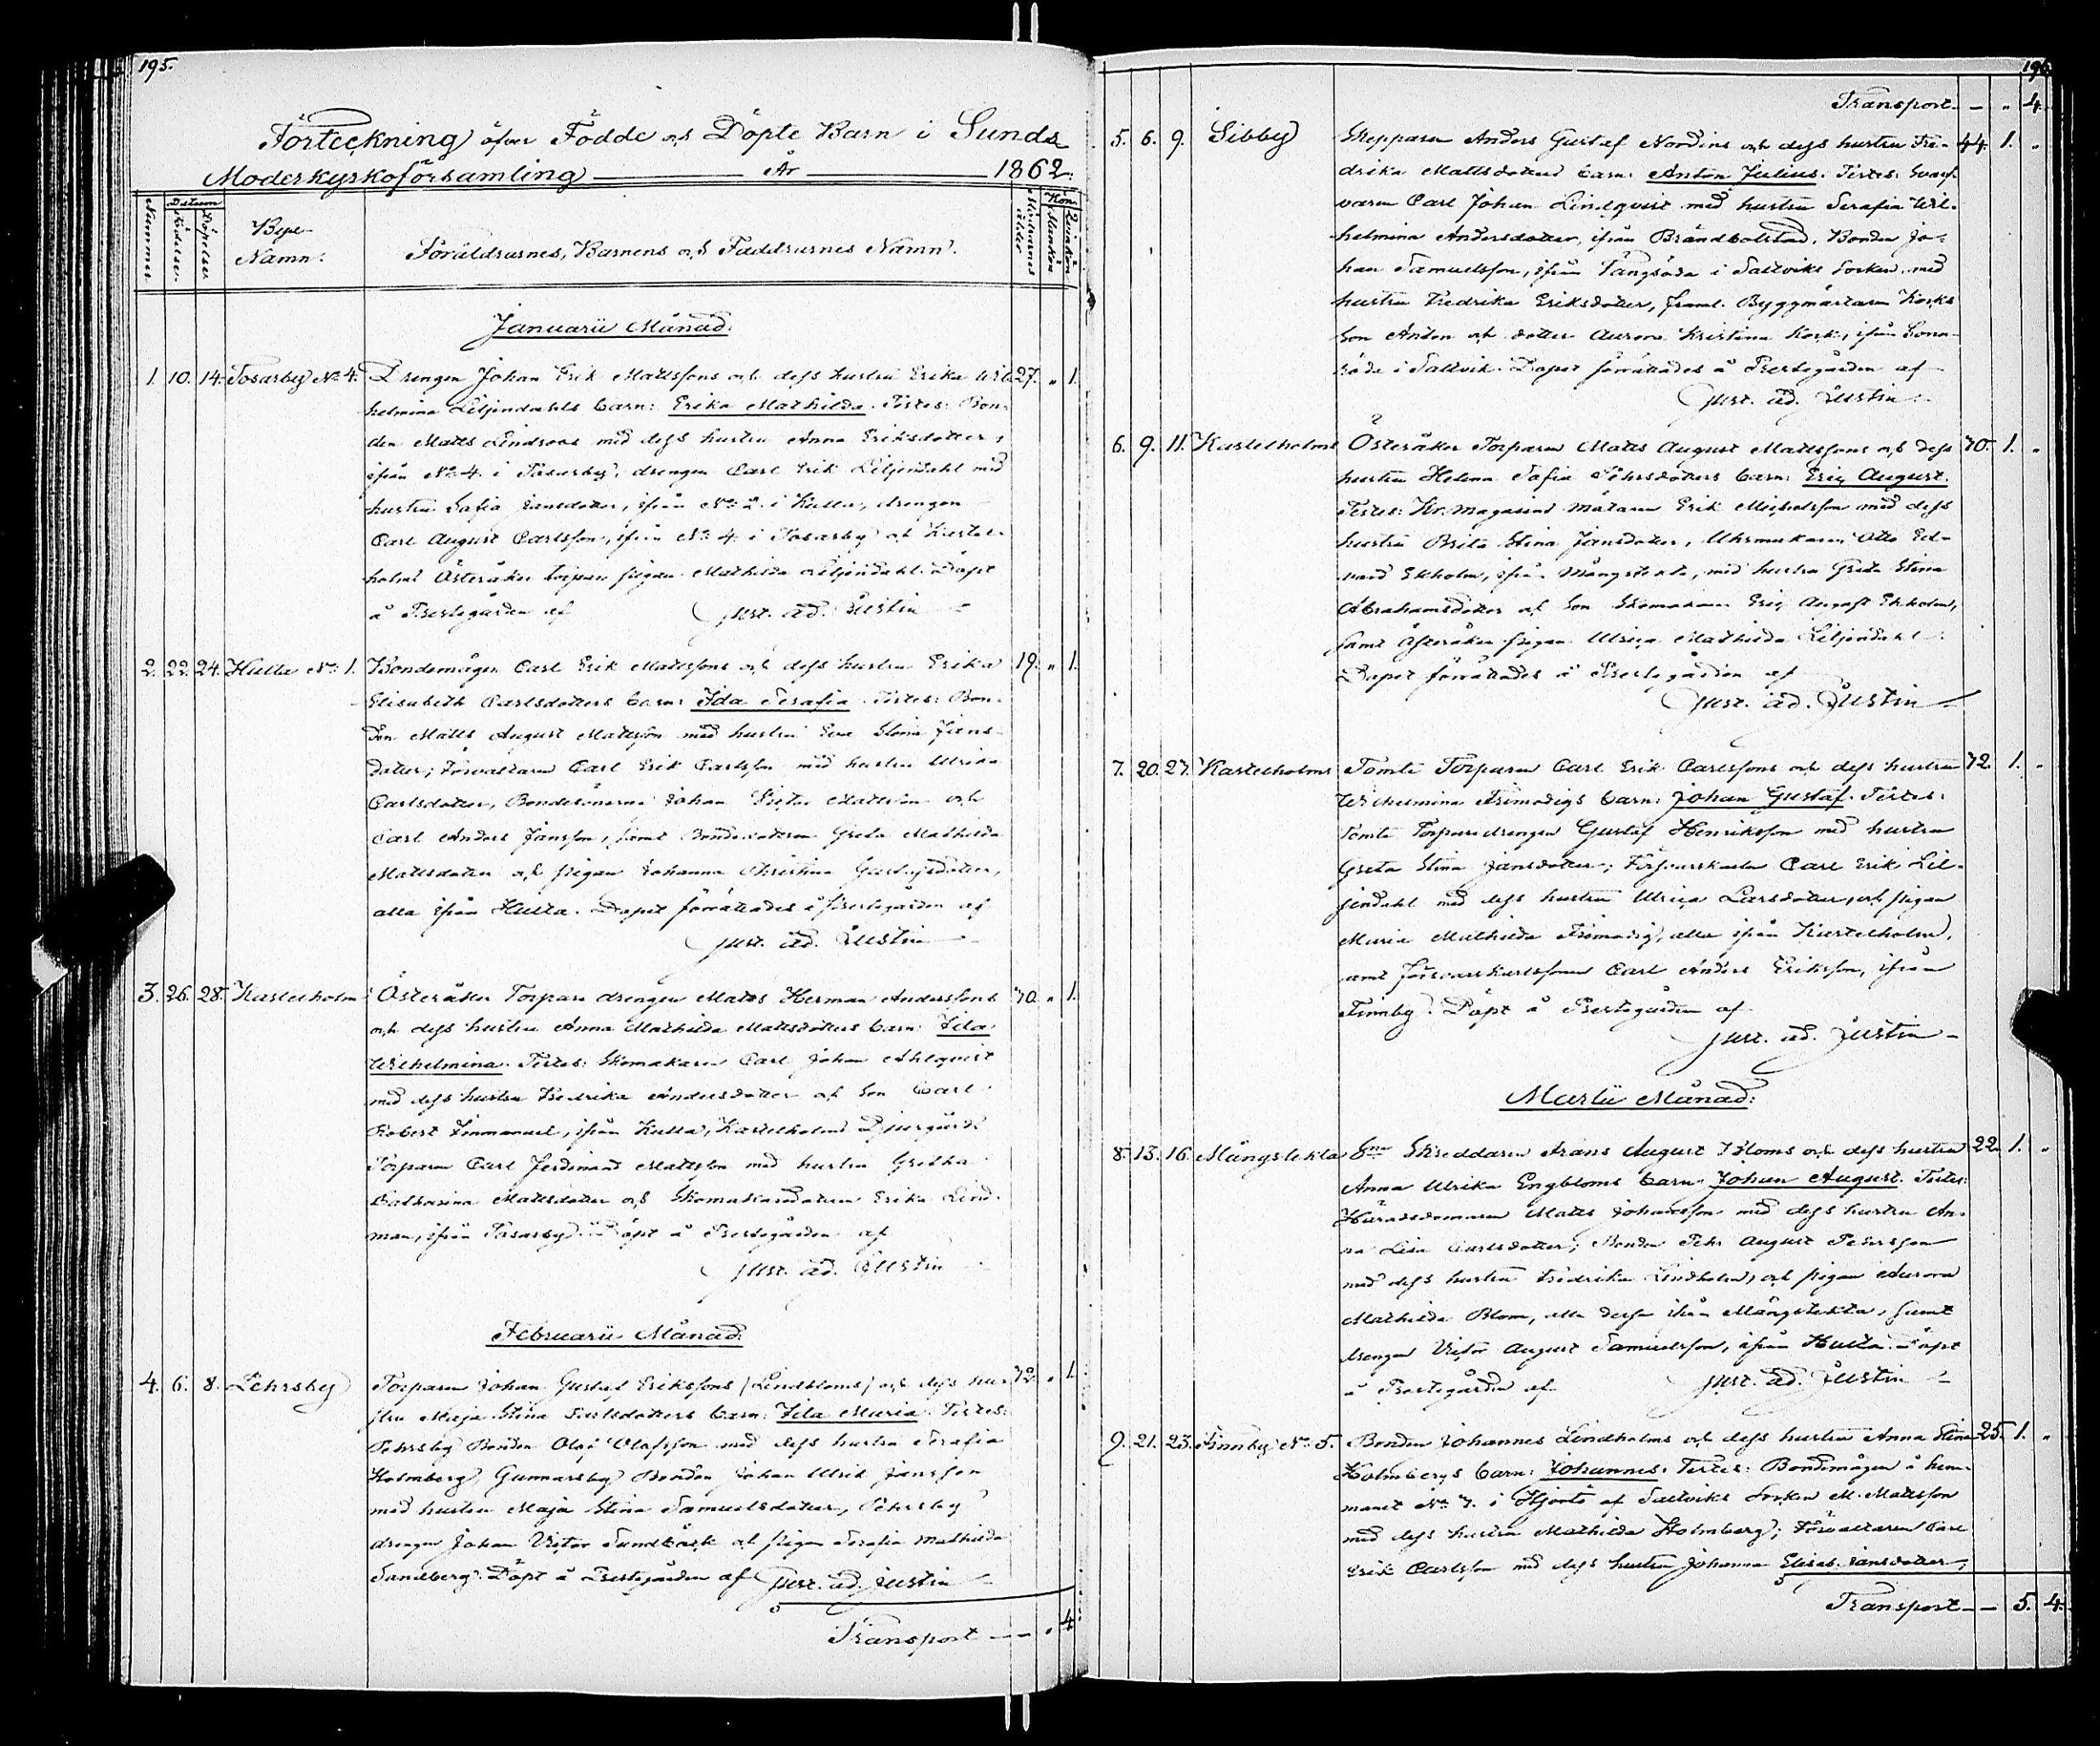 195.
Förteckning öfver Födde och Döpte Barn i Sunds
Moderkyrkoförsamling År 1862.
Nummer.
Datum
Födelse.
Döpelse
Byse
Namn.
Föräldrarnes, Barnens och Faddrarnes Namn.
Mödrarnes ålder
Kön.
Mankön
Qvinkön
Januarii Månad.
1. 10. 14. Tosarby No 4. Drengen Johan Erik Mattssons och dess hustru Erika Wil- 27. " 1.
helmina Liljendahls barn: Erika Mathilda. Testes: Bon-
den Matts Lindroos med dess hustru Anna Eriksdotter,
ifrån No 4 i Tosarby, drengen Carl Erik Liljendahl med
hustru Safia Jansdotter, ifrån No 2 i Hulta, drengen
Carl August Carlsson, ifrån No 4 i Tosarby och Kastel-
holms Österåker torpare pigan Mathilda Liljendahl. Döpt
å Prestegården af Just. ad. Justin
2. 22. 24. Hulta No 1. Bondemågen Carl Erik Mattssons och dess hustru Erika 19. " 1.
Elisabeth Carlsdotters barn: Ida Serafia. Testes: Bon-
den Matts August Mattsson med hustru Eva Stina Jans-
dotter; Förvaltaren Carl Erik Carlsson med hustru Ulrika
Carlsdotter, Bondesönerne Johan Victor Mattsson och
Carl Anders Jansson, samt Bondedottren Greta Mathilda
Mattsdotter och pigan Johanna Christina Gustafsdotter,
alla ifrån Hulta. Dopet förrättades å Prestegården af
Just. ad. Justin
3. 26. 28. Kastelholm Österåker Torpare drengen Matts Herman Anderssons 30. " 1.
och dess hustru Anna Mathilda Mattsdotters barn: Ida
Wilhelmina. Testes: Skomakaren Carl Johan Ahlqvist
med dess hustru Fredrika Andersdotter och Son Carl
Robert Immanuel, ifrån Hulta, Kastelholms Djurgårds
Torparen Carl Ferdinand Mattsson med hustru Gretha
Catharina Mattsdotter och Skomakaredottren Erika Lind-
man, ifrån Tosarby. Döpt å Prestegården af
Just. ad. Justin
Februarii Månad.
4. 6. 8. Lehrsby Torparen Johan Gustaf Erikssons (Lindbloms) och dess hu- 32. " 1.
stru Maja Stina Carlsdotters barn: Ida Maria. Testes:
Pehrsby Bonden Olof Olofsson med dess hustru Serafia
Holmberg, Gunnarsby Bonden Johan Ulrik Jansson
med hustru Maja Stina Samuelsdotter, Pehrsby
drengen Johan Victor Sundbäck och pigan Serafia Mathilda
Sandberg. Döpt å Prestegården af Just. ad. Justin
Transport — — " 4
196.
Transport — " 4.
5. 6. 9. Sibby Skepparen Anders Gustaf Nordins och dess hustru Fre- 44. 1. "
drika Mattsdotters barn: Anton Julius. Testes: Svarf-
varen Carl Johan Lindqvist med hustru Serafia Wil-
helmina Andersdotter, ifrån Brändbolstad, Bonden Jo-
han Samuelsson, ifrån Tängsöda i Saltviks Socken, med
hustru Fredrika Eriksdotter, framl. Byggmästaren Kocks
Son Anton och dotter Aurora Kristina Kock, ifrån Sona-
röda i Saltvik. Dopet förrättades å Prestegården af
Just. ad. Justin.
6. 9. 11. Kastelholms Österåker Torparen Matts August Mattssons och dess 30. 1. "
hustru Helena Safia Pehrsdotters barn: Eric August.
Testes: Kr. Magasins Mätaren Erik Michelsson med dess
hustru Brita Stina Jansdotter, Uhrmakaren Otto Ed-
vard Ekholm, ifrån Mångstekta, med hustru Greta Stina
Abrahamsdotter och Son Skomakaren Eric August Ekholm,
samt Österåker pigan Ulrica Mathilda Liljendahl.
Dopet förrättades å Prestegården af
Just. ad. Justin
7. 20. 27. Kastelholms Tomta Torparen Carl Erik Carlssons och dess hustru 32. 1. "
Wilhelmina Frimodigs barn: Johan Gustaf. Testes:
Tomta Torparedrengen Gustaf Henriksson med hustru
Greta Stina Jansdotter; Försvarskarlen Carl Erik Lil-
jendahl med dess hustru Ulrica Larsdotter, och pigan
Maria Mathilda Frimodig, alla ifrån Kastelholm,
samt försvarskarlssonen Carl Anders Eriksson, ifrån
Finnby. Döpt å Prestegården af
Just. ad. Justin
Martii Månad:
8. 13. 16. Mångstekta Skreddaren Frans August Bloms och dess hustru 22. 1. "
Anna Ulrika Engbloms barn: Johan August. Testes:
Häradsdomaren Matts Johansson med dess hustru An-
na Lisa Carlsdotter; Bonden Pehr August Petersson
med dess hustru Fredrika Lindholm, och pigan Aurora
Mathilda Blom, alla dessa ifrån Mångstekta, samt
drengen Victor August Samuelsson, ifrån Hulta. Döpt
å Prestegården af Just. ad. Justin
9. 21. 23. Finnby No 5. Bonden Johannes Lindholms och dess hustru Anna Stina 25. 1. "
Holmbergs barn: Johannes. Testes: Bondemågen å hem-
manet No 7. i Hjortö af Saltviks Socken M. Mattsson
med dess hustru Mathilda Holmberg; Förvaltaren Carl
Erik Carlsson med dess hustru Johanna Elisab. Jansdotter,
Transport — — 5. 4.